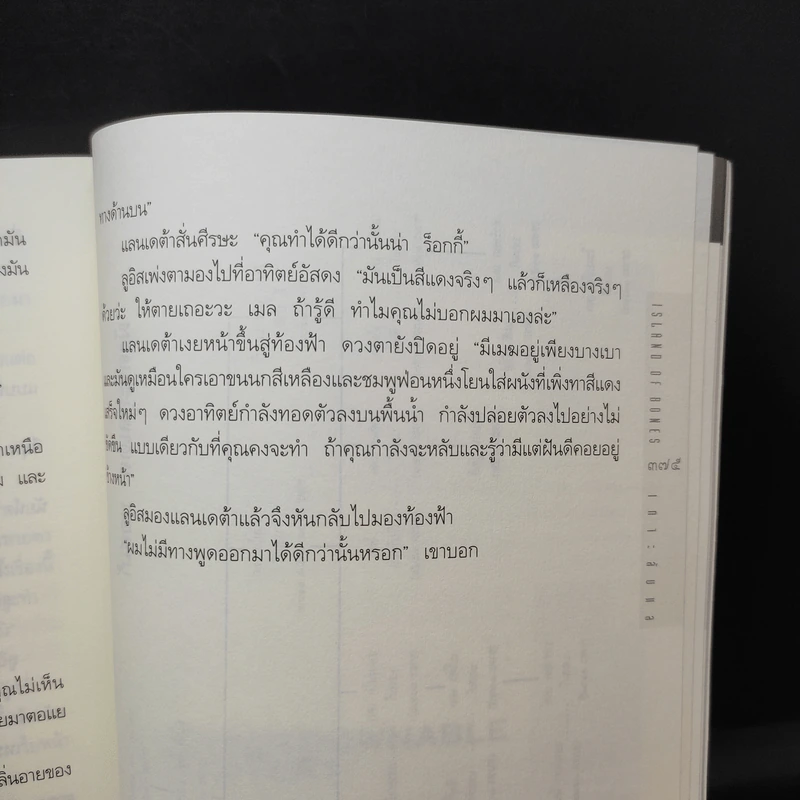 ทางด้านบน”
แลนเดต้าสั่นศีรษะ “คุณทำได้ดีกว่านั้นน่า ร็อกกี้”
ลูอิสเพ่งตามองไปที่อาทิตย์อัสดง “มันเป็นสีแดงจริงๆ แล้วก็เหลืองจริงๆ
ด้วยว่ะ ให้ตายเถอะวะ เมล ถ้ารู้ดี ทำไมคุณไม่บอกผมมาเองล่ะ”
แลนเดต้าเงยหน้าขึ้นสู่ท้องฟ้า ดวงตายังปิดอยู่ “มีเมฆอยู่เพียงบางเบา
และมันดูเหมือนใครเอาขนนกสีเหลืองและชมพูฟ่อนหนึ่งโยนใส่ผนังที่เพิ่งทาสีแดง
เสร็จใหม่ๆ ดวงอาทิตย์กำลังทอดตัวลงบนพื้นน้ำ กำลังปล่อยตัวลงไปอย่างไม่
ขัดขืน แบบเดียวกับที่คุณคงจะทำ ถ้าคุณกำลังจะหลับและรู้ว่ามีแต่ฝันดีคอยอยู่
ข้างหน้า”
ลูอิสมองแลนเดต้าแล้วจึงหันกลับไปมองท้องฟ้า
“ผมไม่มีทางพูดออกมาได้ดีกว่านั้นหรอก” เขาบอก
ISLAND OF BONES
๓๗๕
และ
คุณไม่เห็น
ยมาตอแย
ลิ่นอายของ